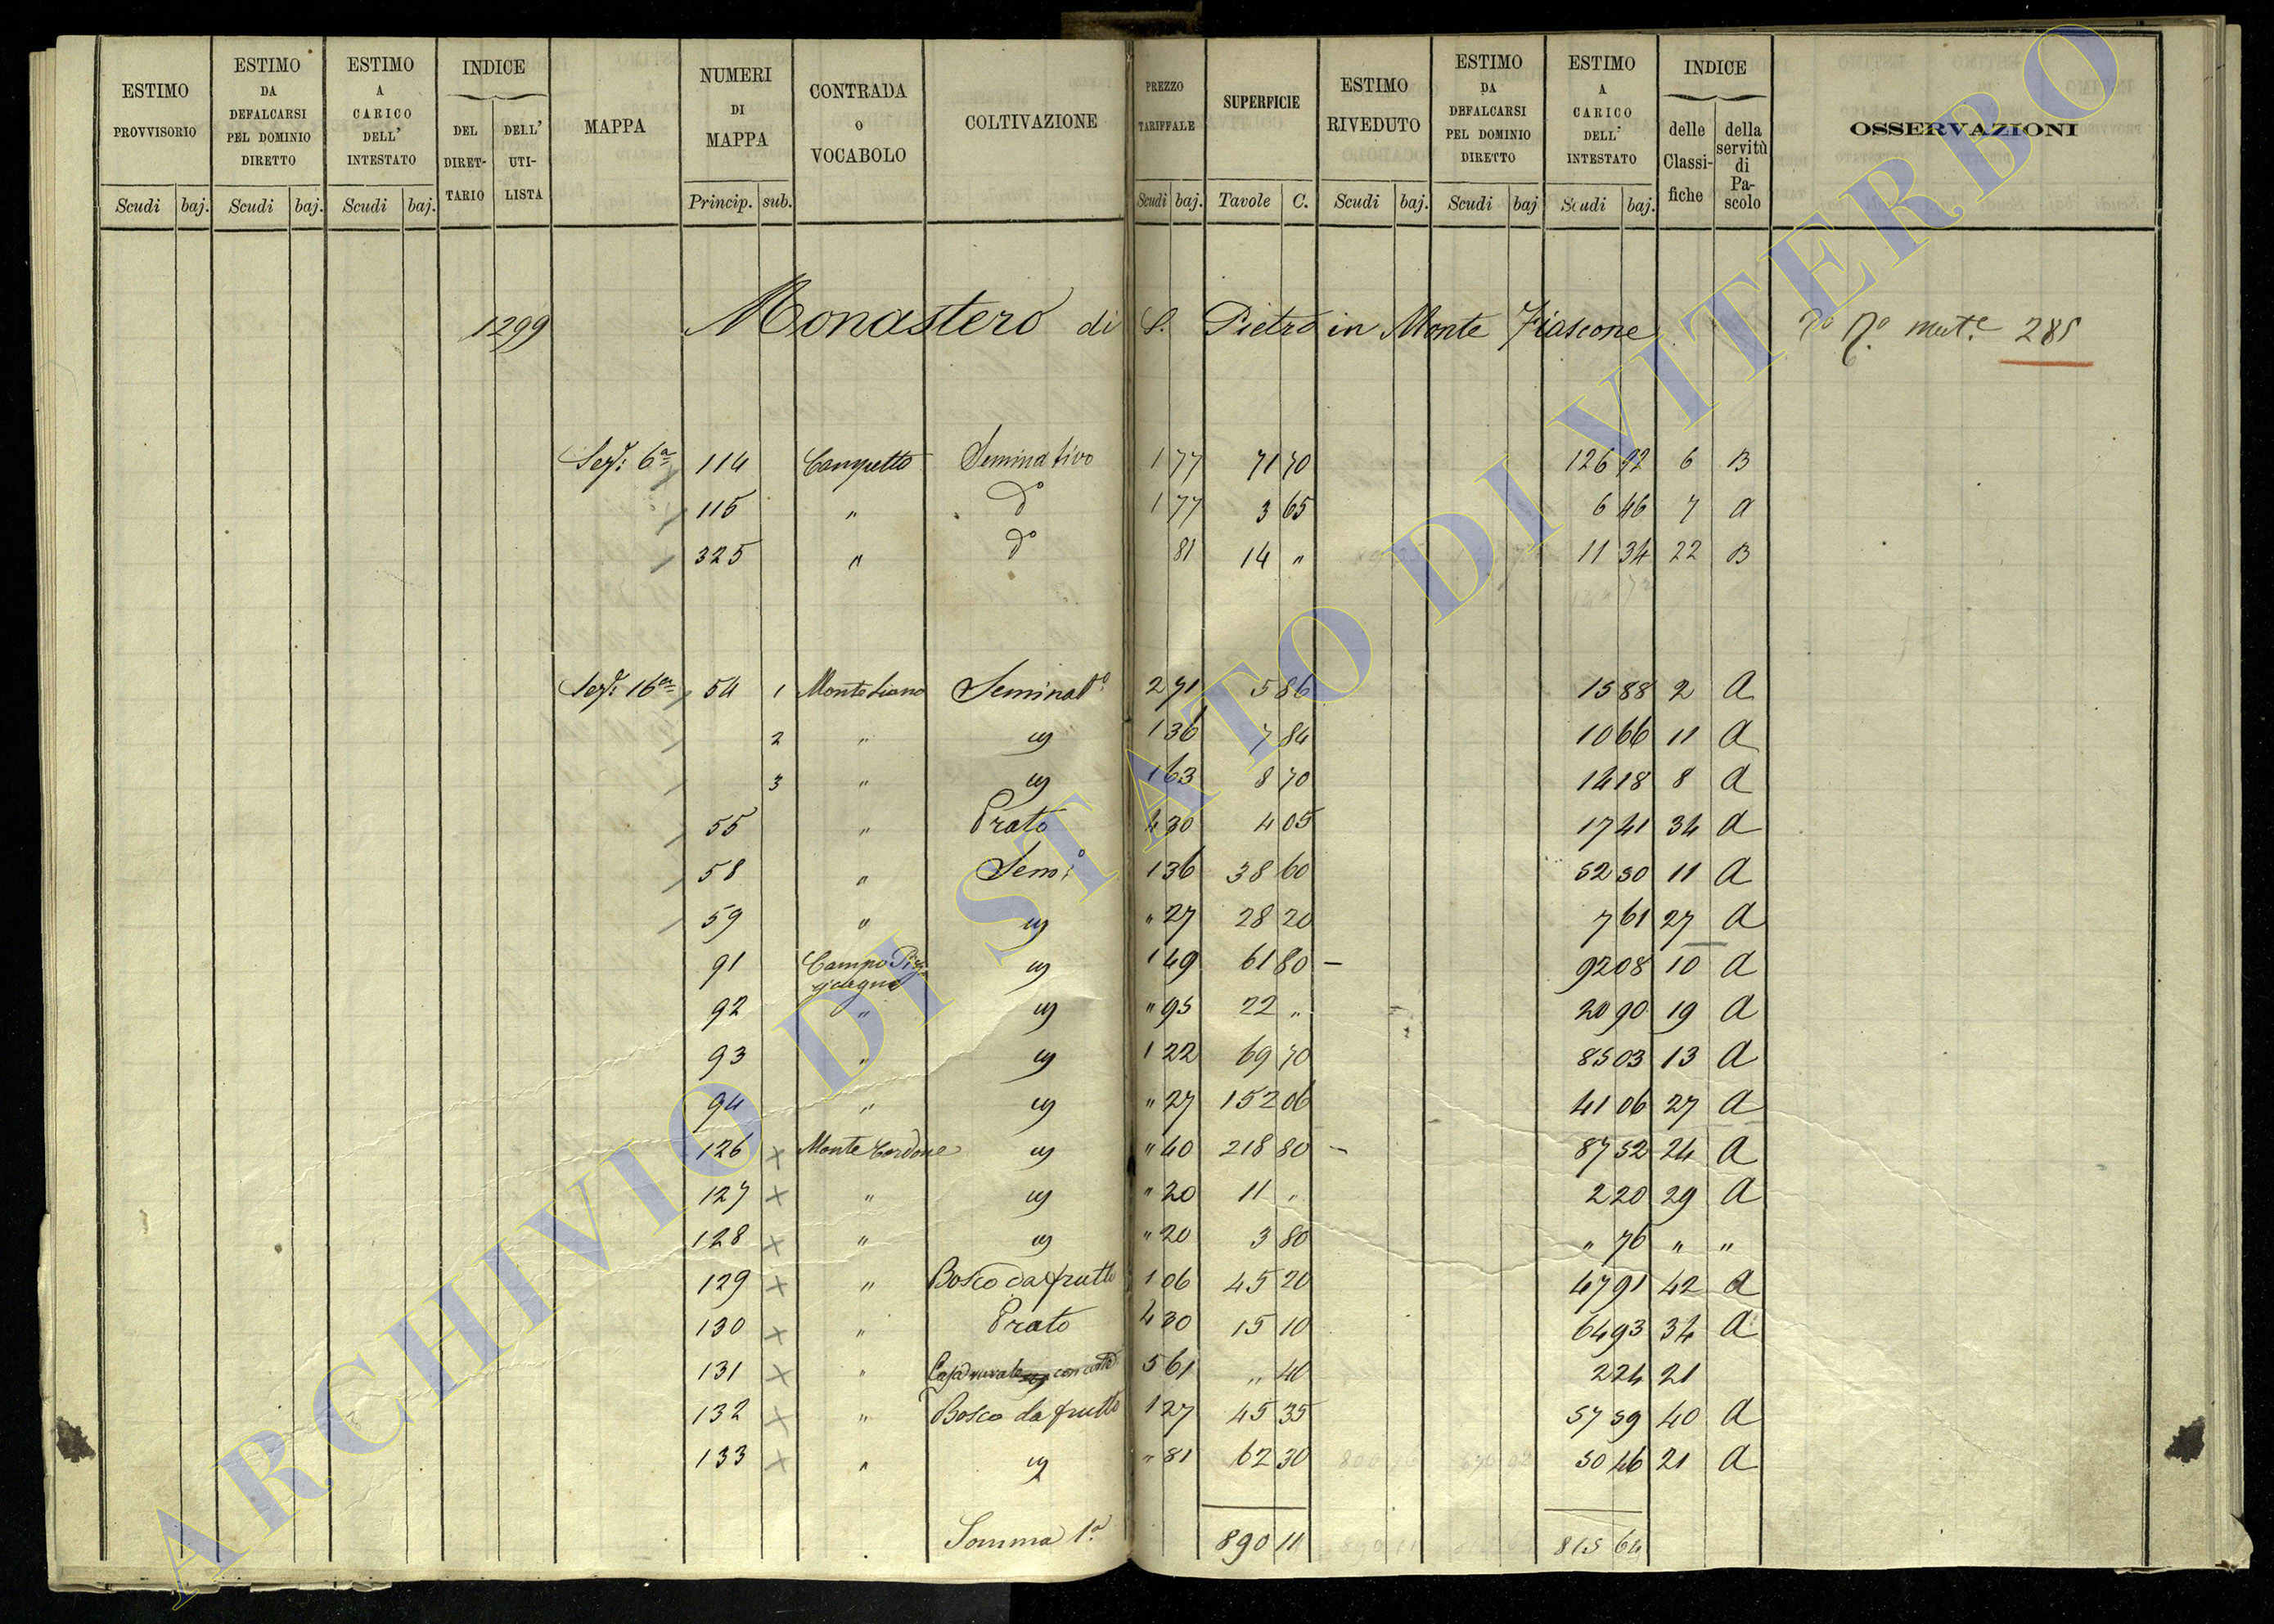 ESTIMO PROVVISORIO Scudi baj.
ESTIMO DA DEFALCARSI PEL DOMINIO DIRETTO Scudi baj.
ESTIMO A CARICO DELL' INTESTATO Scudi baj.
INDICE DEL DIRET-TARIO DELL' UTI-LISTA
MAPPA
NUMERI DI MAPPA Princip. sub.
CONTRADA O VOCABOLO
COLTIVAZIONE
PREZZO TARIFFALE Scudi baj.
SUPERFICIE Tavole C.
ESTIMO RIVEDUTO Scudi baj.
ESTIMO DA DEFALCARSI PEL DOMINIO DIRETTO Scudi baj
ESTIMO A CARICO DELL' INTESTATO Scudi baj.
INDICE delle Classi-fiche della servitù di Pa-scolo
OSSERVAZIONI
1299 Monastero di S. Pietro in Monte Fiascone mut.e 285
Sez: 6a 114 Campetto Seminativo 1 77 71 70 126 92 6 B
115 " do 1 77 3 65 6 46 7 a
325 " do 81 14 " 11 34 22 B
Sez: 16a 54 1 Seminato 2 71 5 86 15 88 2 A
2 " 1 36 7 84 10 66 11 A
3 " 1 63 8 70 14 18 8 A
55 " Prato 4 30 4 05 17 41 34 A
58 " Semo 1 36 38 60 52 50 11 A
59 " " 27 28 20 7 61 27 A
91 Campo 1 49 61 80 – 92 08 10 A
92 " " 95 22 " 20 90 19 A
93 " 1 22 69 70 85 03 13 A
94 " " 27 152 06 41 06 27 A
126 × Monte Cardone " 40 218 80 – 87 52 24 A
127 × " " 20 11 " 2 20 29 A
128 × " " 20 3 80 " 76 " "
129 × " Bosco da frutto 1 06 45 20 47 91 42 A
130 × " Prato 4 30 15 10 64 93 34 A
131 × " Casa rurale con corte 5 61 " 40 2 24 21
132 × " Bosco da frutto 1 27 45 35 57 59 40 A
133 × " " 81 62 30 50 46 21 A
Somma 1a 890 11 815 64
ARCHIVIO DI STATO DI VITERBO